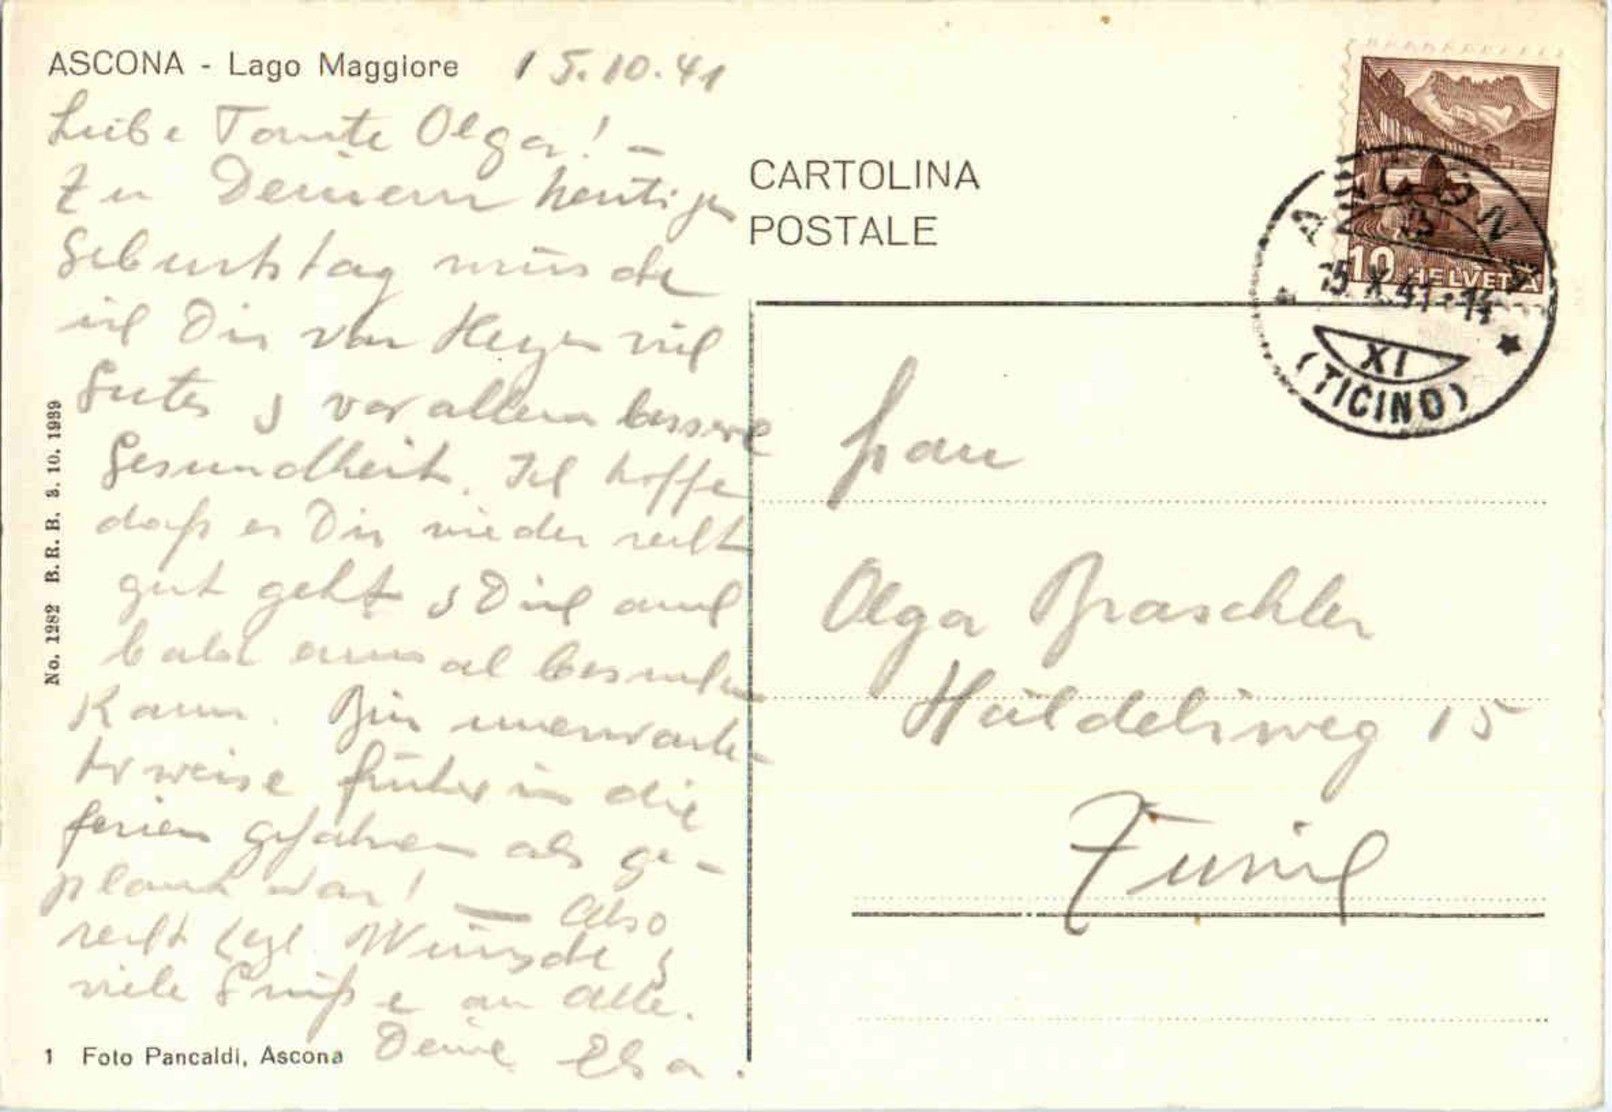 ASCONA - Lago Maggiore 15.10.41
Liebe Tante Olga! -
Zu Deinem heutigen
Geburtstag wünsche
ich Dir von Herzen viel
Gutes & vor allem bessere
Gesundheit. Ich hoffe
daß es Dir wieder recht
gut geht & Dich auch
bald einmal besuchen
kann. Bin unerwarte-
terweise früher in die
Ferien gefahren als ge-
plant war! — Also
recht hzl. Wünsche &
viele Grüße an alle.
Deine Elsa.
1 Foto Pancaldi, Ascona
No. 1282 B.R.B. 3.10.1939
CARTOLINA
POSTALE
10 HELVETIA
ASCONA
15.X.41-14
XI
(TICINO)
Frau
Olga Braschler
Häldeliweg 15
Zürich